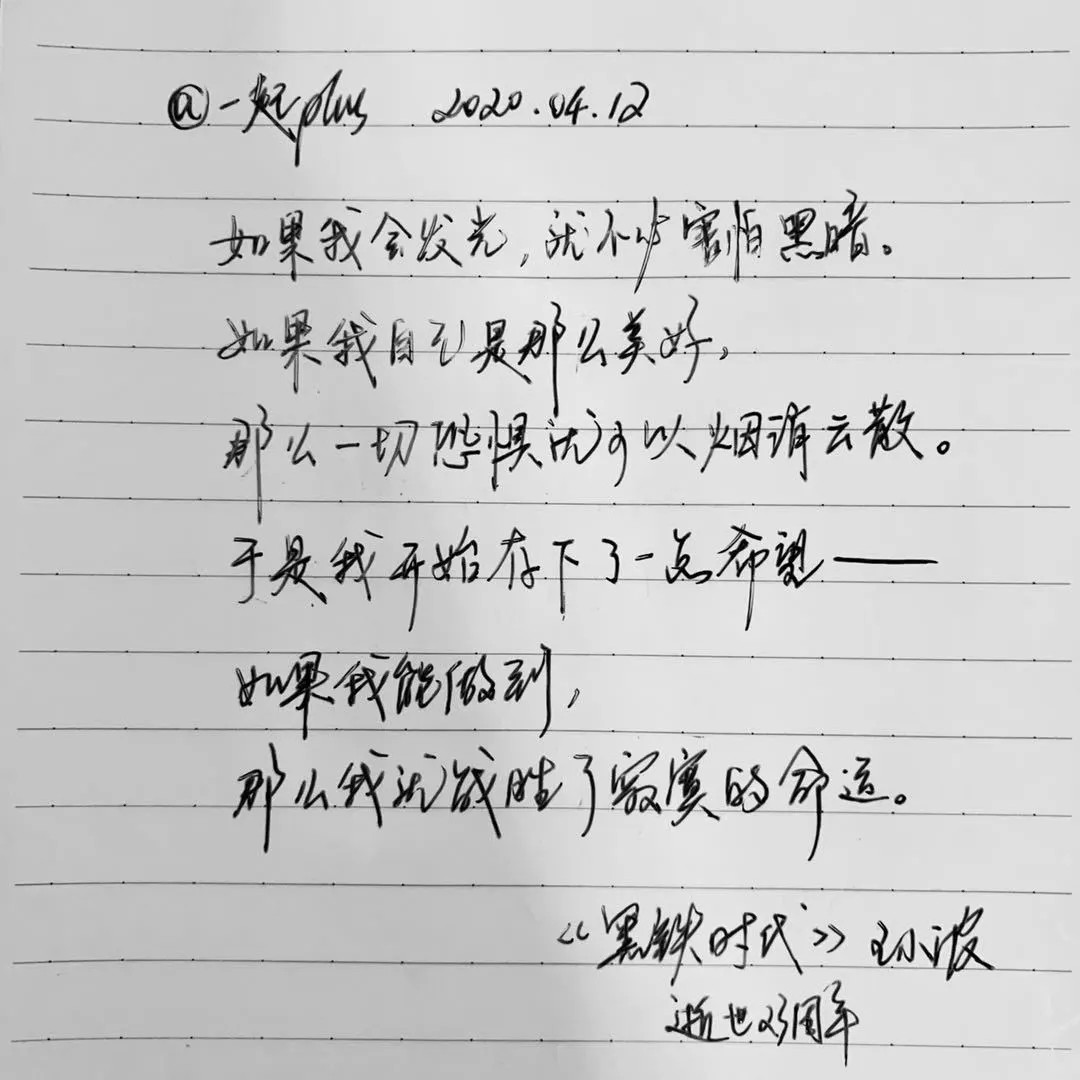 @一起plus 2020.04.12
如果我会发光，就不必害怕黑暗。
如果我自己是那么美好，
那么一切恐惧就可以烟消云散。
于是我开始存下了一点希望——
如果我能做到，
那么我就战胜了寂寞的命运。
《黑铁时代》王小波
逝世23周年